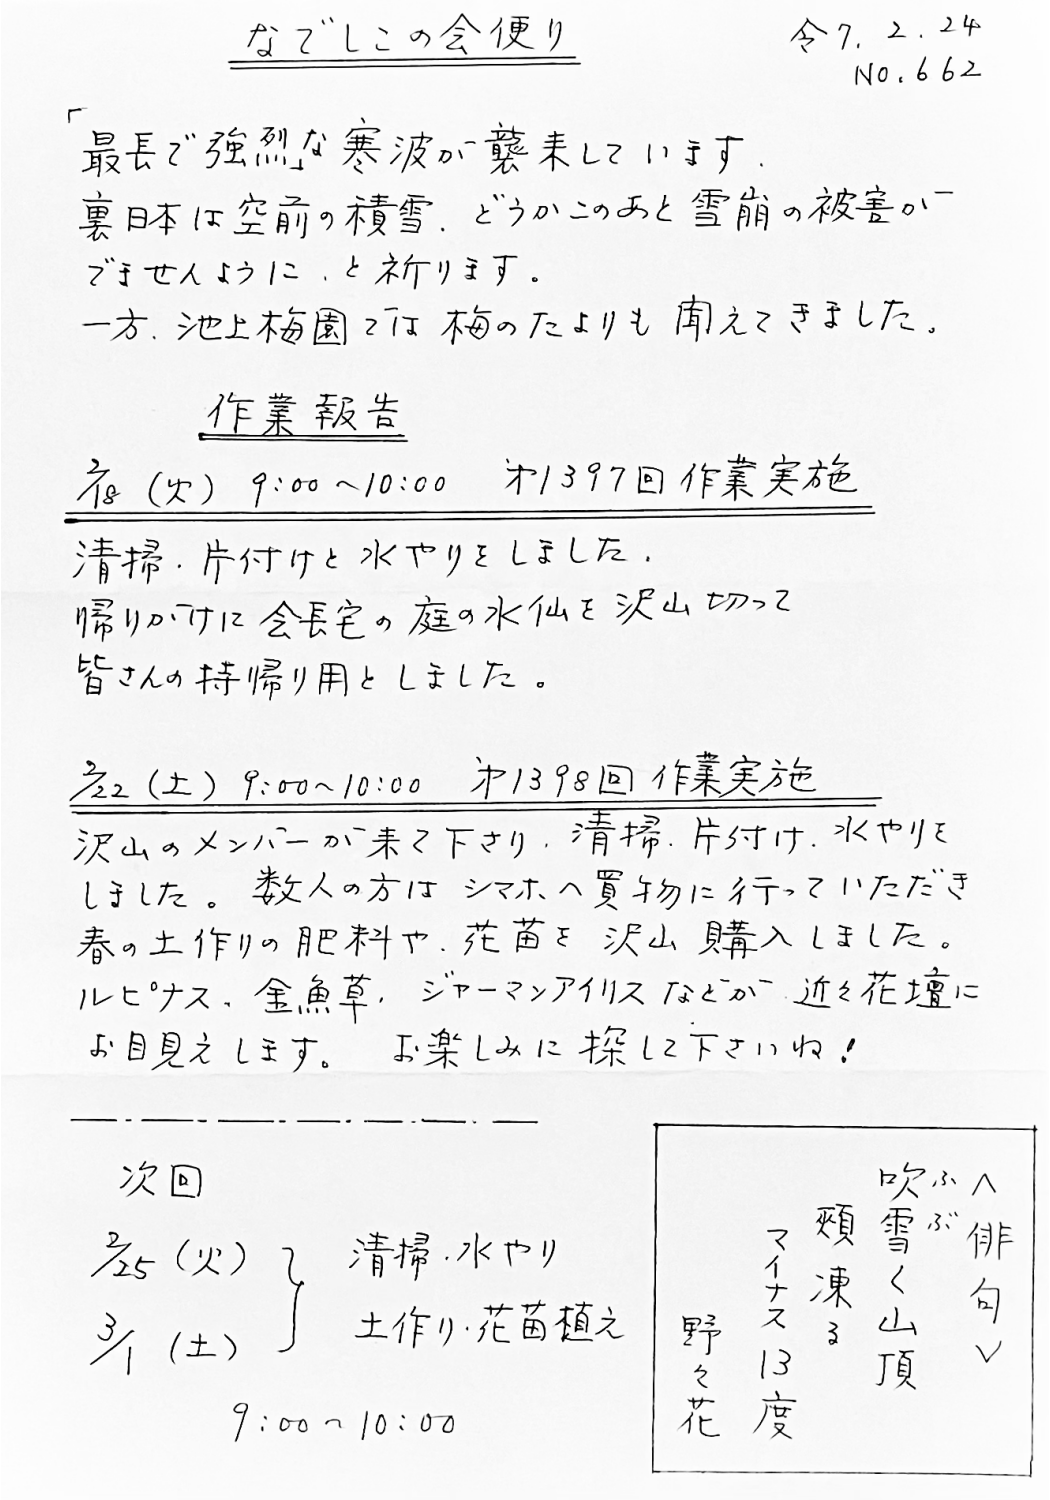 なでしこの会便り
令7.2.24
NO.662
「最長で強烈」な寒波が襲来しています.
裏日本は空前の積雪.どうかこのあと雪崩の被害が
でませんように、と祈ります。
一方、池上梅園では梅のたよりも聞えてきました。
作業報告
2/18(火) 9:00~10:00 第1397回作業実施
清掃.片付けと水やりをしました.
帰りがけに会長宅の庭の水仙を沢山切って
皆さんの持帰り用としました。
2/22(土) 9:00~10:00 第1398回作業実施
沢山のメンバーが来て下さり、清掃.片付け.水やりを
しました。数人の方はシマホへ買物に行っていただき
春の土作りの肥料や、花苗を沢山購入しました。
ルピナス、金魚草、ジャーマンアイリスなどが近々花壇に
お目見えします。お楽しみに探して下さいね!
次回
2/25(火) 清掃.水やり
3/1(土) 土作り.花苗植え
9:00~10:00
<俳句>
吹雪く山頂
ふぶ
頬凍る
マイナス13度
野々花